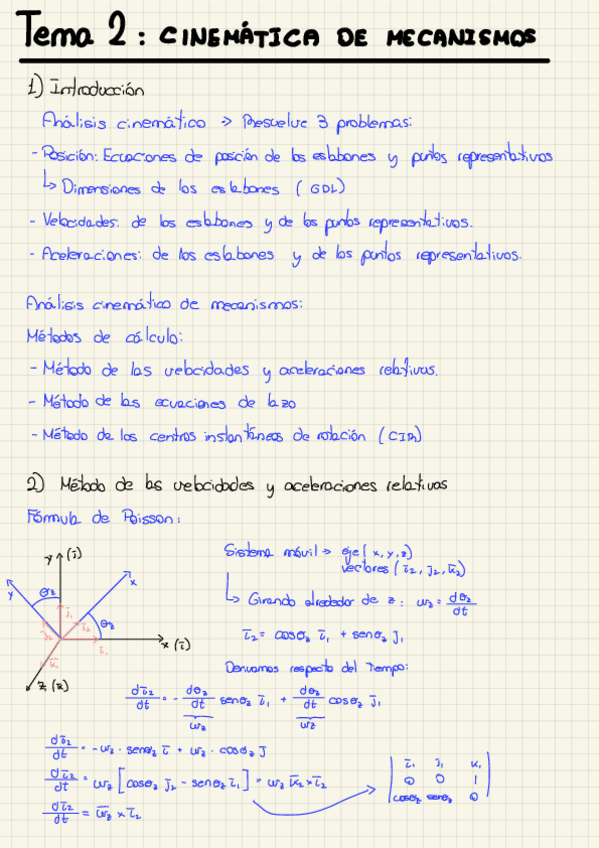 Tema 2: CINEMÁTICA DE MECANISMOS
1) Introducción
Análisis cinemático → Resuelve 3 problemas:
- Posición: Ecuaciones de posición de los eslabones y puntos representativos
↳ Dimensiones de los eslabones (GDL)
- Velocidades: de los eslabones y de los puntos representativos.
- Aceleraciones: de los eslabones y de los puntos representativos.
Análisis cinemático de mecanismos:
Métodos de cálculo:
- Método de las velocidades y aceleraciones relativas.
- Método de las ecuaciones de lazo
- Método de los centros instantáneos de rotación (CIR)
2) Método de las velocidades y aceleraciones relativas
Fórmula de Poisson:
y (j)
x
y
θz
θz
x (i)
z (k)
Sistema móvil → eje (x, y, z)
vectores (i̅2, j̅2, k̅2)
↳ Girando alrededor de z: ωz = dθz/dt
i̅2 = cosθz i̅1 + senθz j̅1
Derivamos respecto del tiempo:
di̅2/dt = - dθz/dt senθz i̅1 + dθz/dt cosθz j̅1
ωz ωz
di̅2/dt = -ωz · senθz i̅ + ωz · cosθz j̅
di̅2/dt = ωz [cosθz j̅2 - senθz i̅1] = ωz k̅2 × i̅2
di̅2/dt = ω̅z × i̅2
i̅1 j̅1 k̅1
0 0 1
cosθz senθz 0